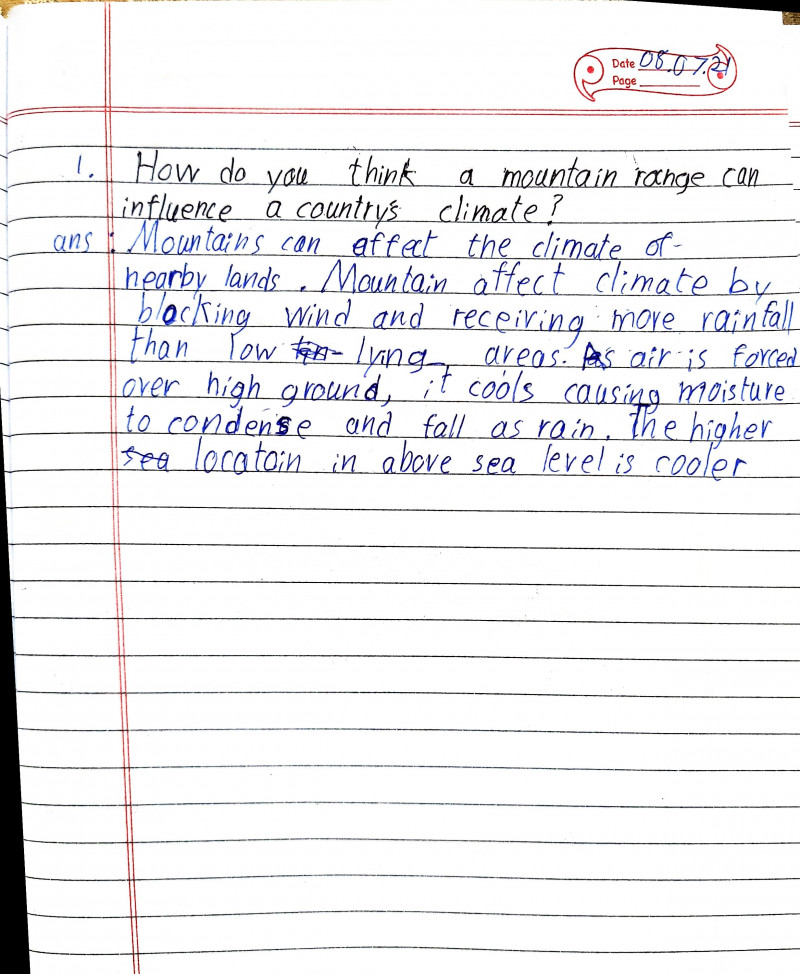 Date 08.07.21
Page
1. How do you think a mountain range can
influence a country's climate?
ans : Mountains can affect the climate of
nearby lands. Mountain affect climate by
blocking wind and receiving more rainfall
than low lying areas. As air is forced
over high ground, it cools causing moisture
to condense and fall as rain. The higher
sea locatoin in above sea level is cooler